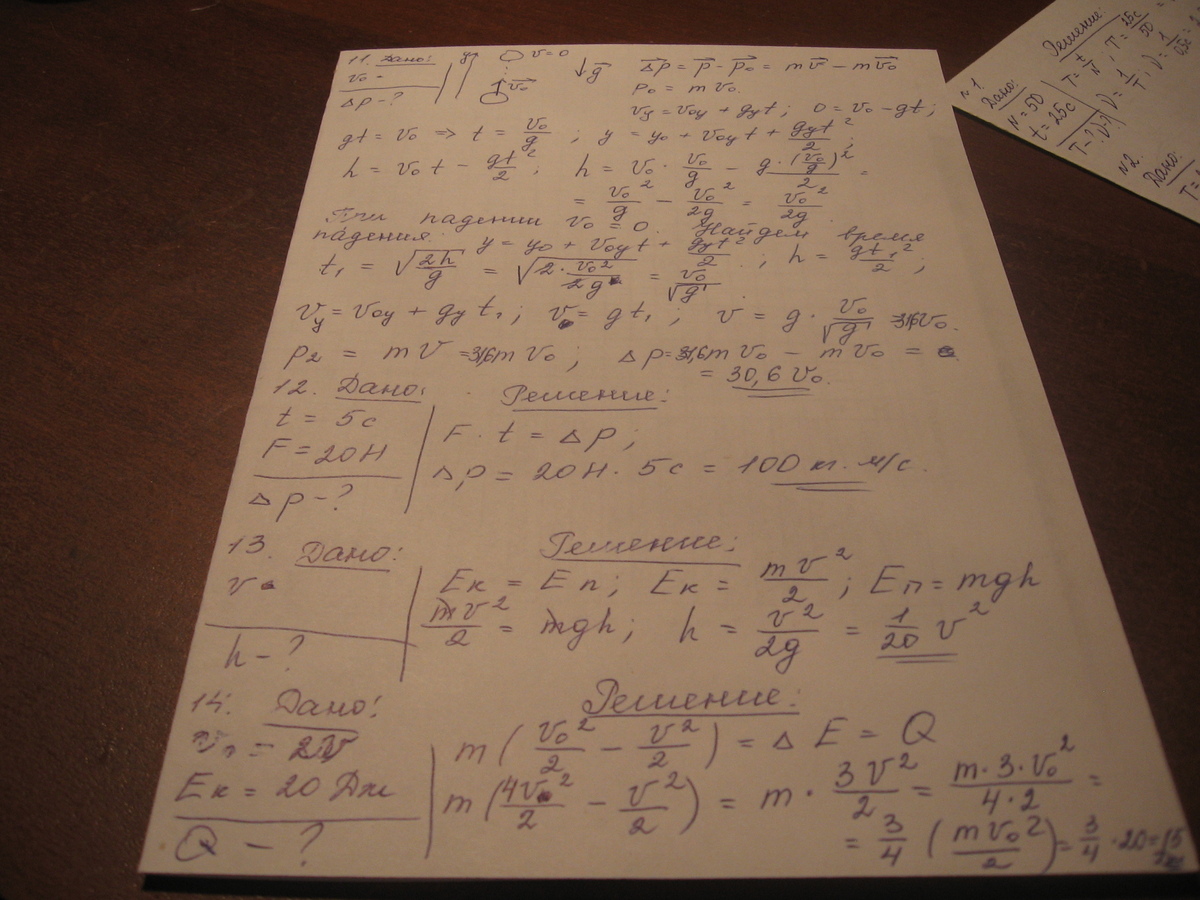 11. Дано: y v=0 ↓g⃗ Δp⃗ = p⃗ - p⃗₀ = mv⃗ - mv⃗₀
v₀ - ↑v⃗₀ p₀ = mv₀.
Δp - ? vy = v₀y + gyt; 0 = v₀ - gt;
gt = v₀ => t = v₀/g; y = y₀ + v₀yt + gyt²/2;
h = v₀t - gt²/2; h = v₀ · v₀/g - g·(v₀/g)²/2 =
= v₀²/g - v₀²/2g = v₀²/2g
При падении v₀ = 0. Найдем время
падения. y = y₀ + v₀yt + gyt²/2; h = gt₁²/2;
t₁ = √(2h/g) = √(2·v₀²/2g) = v₀/√g
vy = v₀y + gyt₁; v = gt₁; v = g · v₀/√g = 31,6v₀.
p₂ = mv = 31,6mv₀; Δp = 31,6mv₀ - mv₀ =
= 30,6v₀.
12. Дано: Решение:
t = 5с
F = 20Н
Δp - ?
F · t = Δp;
Δp = 20Н · 5с = 100 кг · м/с.
13. Дано: Решение:
v
h - ?
Eк = Eп; Eк = mv²/2; Eп = mgh
mv²/2 = mgh; h = v²/2g = 1/20 v²
14. Дано: Решение:
= 2v
Eк = 20 Дж
Q - ?
m(v₀²/2 - v²/2) = ΔE = Q
m(4v²/2 - v²/2) = m · 3v²/2 = m·3·v₀²/4·2 =
= 3/4 (mv₀²/2) = 3/4 · 20 = 15
Решение:
n1.
Дано:
N = 50
t = 25с
T - ? ν - ?
T = t/N; T = 25с/50
n2.
Дано: